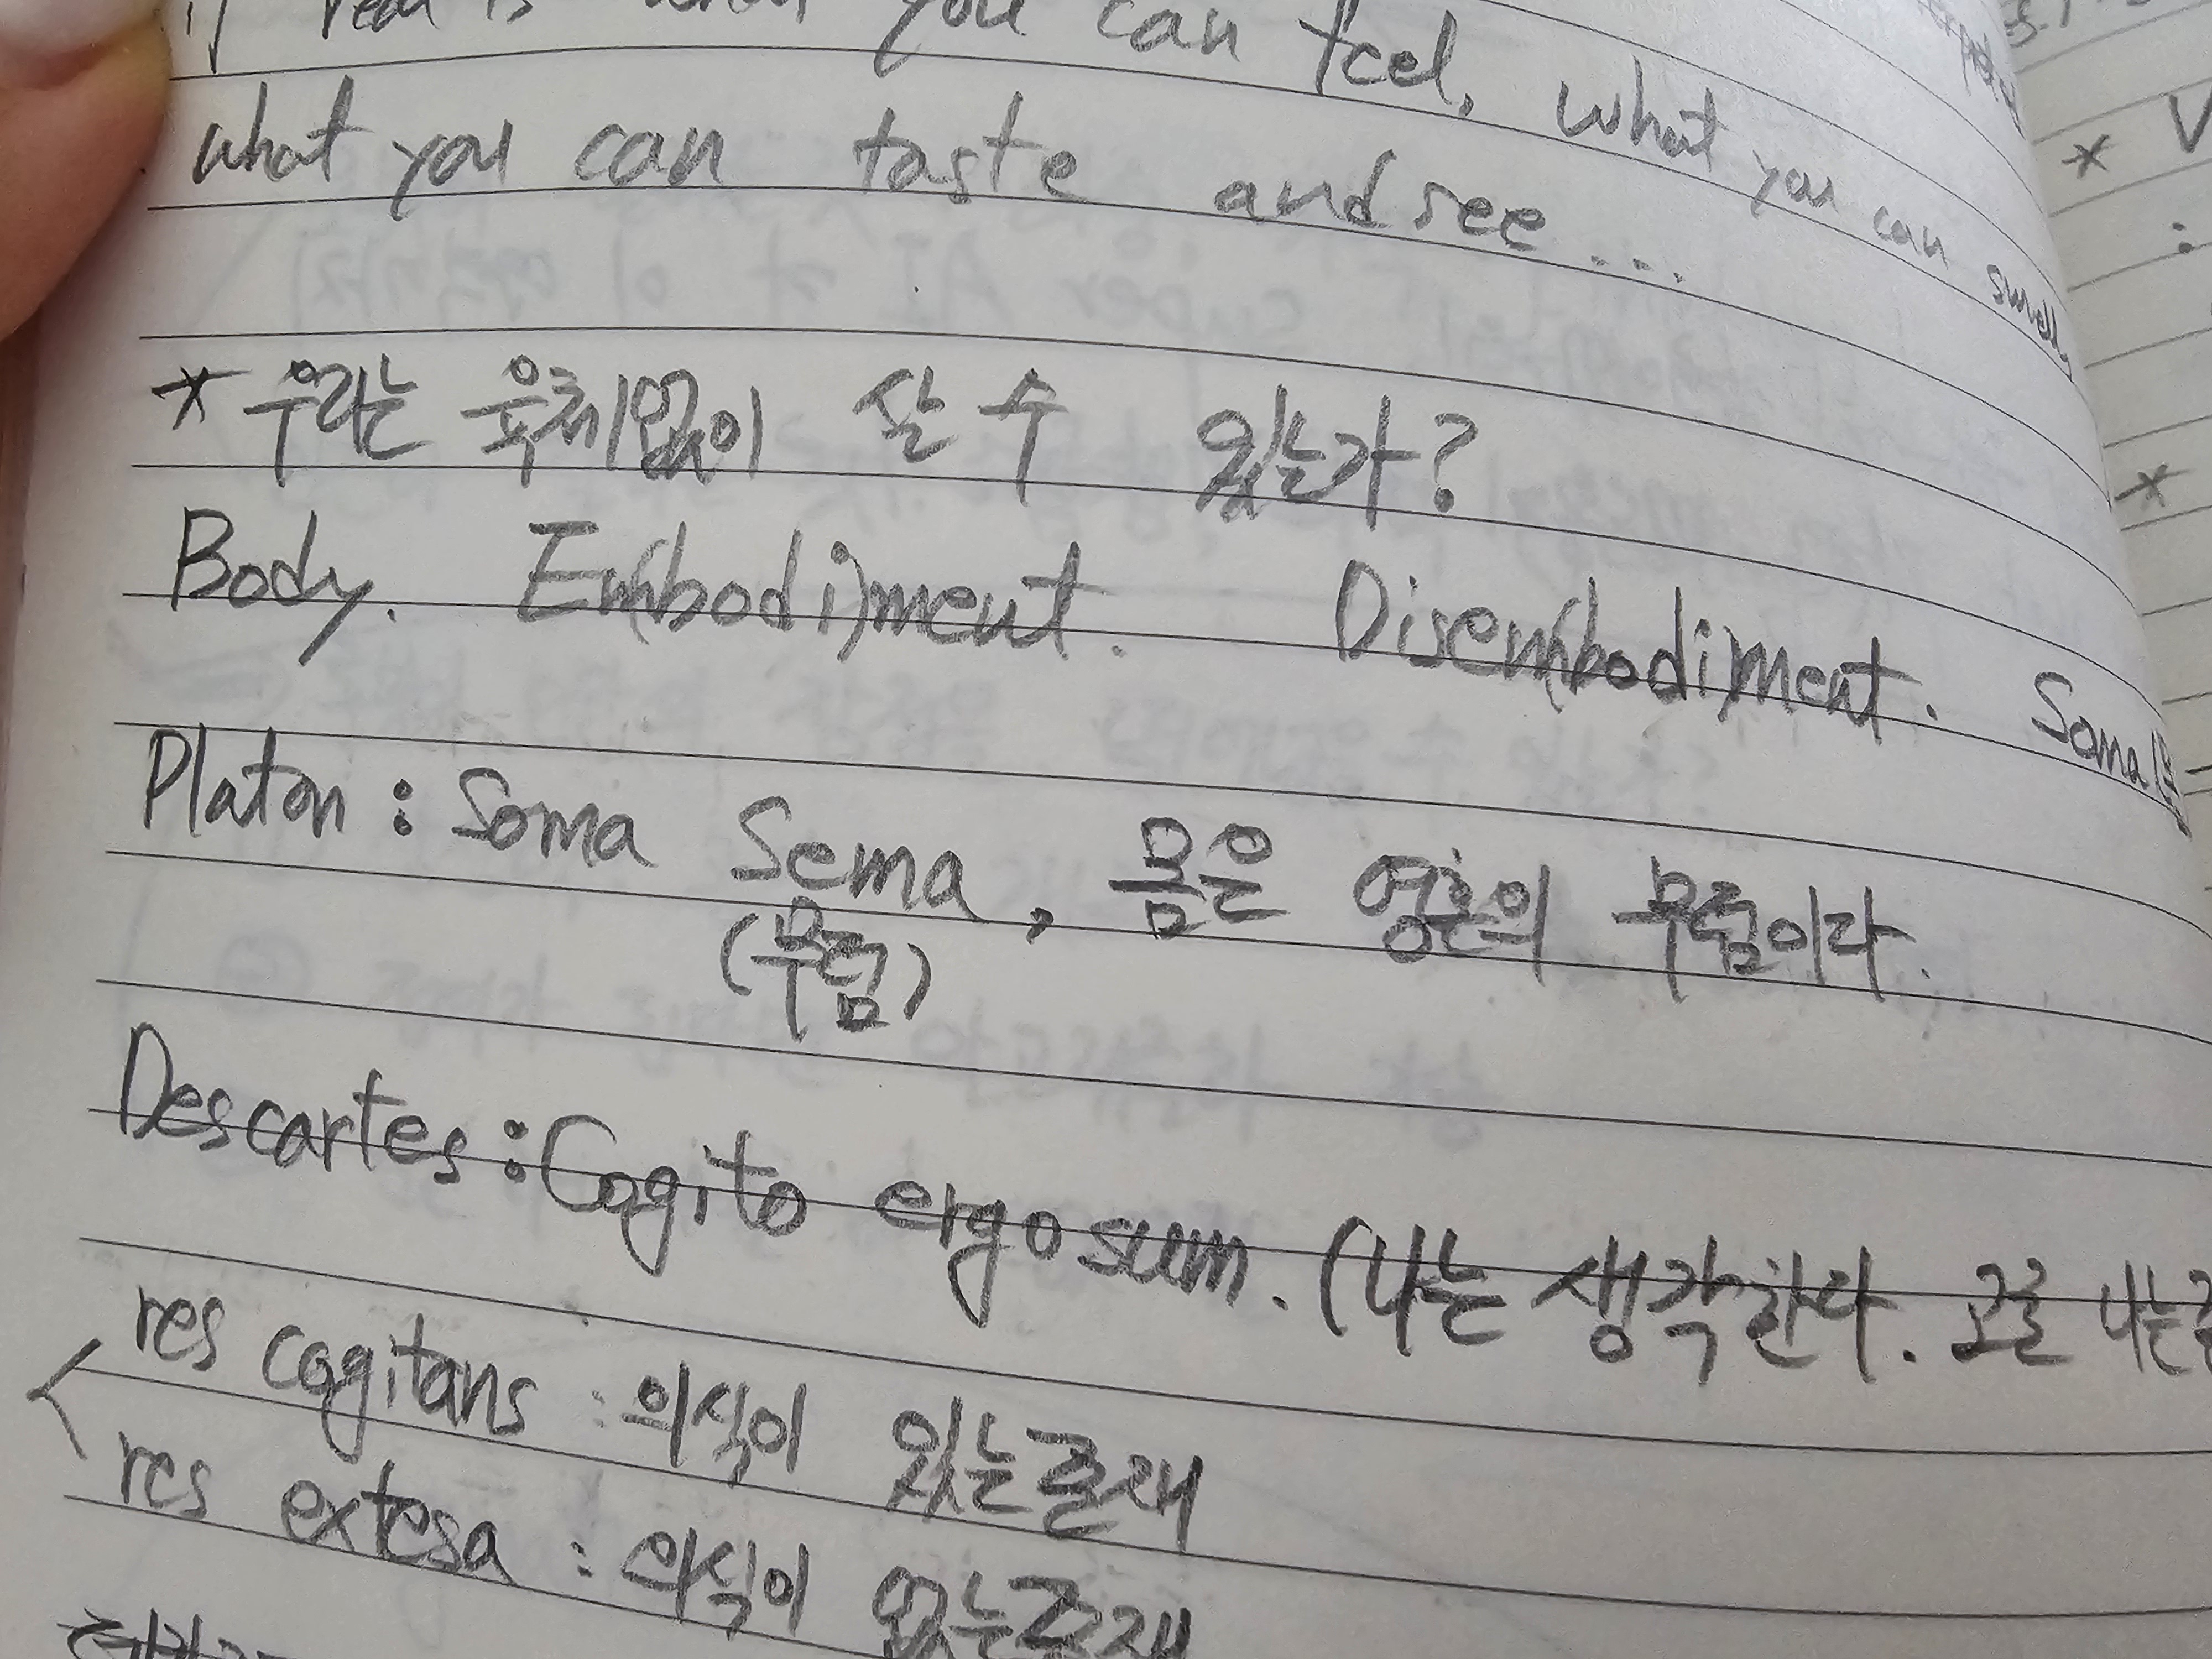 if real is what you can feel, what you can smell,
what you can taste and see ...
* 우리는 육체없이 살 수 있는가?
Body. Em(bodi)ment. Disem(bodi)ment. Soma(몸
Platon : Soma Sema, 몸은 영혼의 무덤이다.
(무덤)
Descartes : Cogito ergo sum. (나는 생각한다. 고로 나는
res cogitans : 의식이 있는 존재
res extesa : 의식이 없는 존재